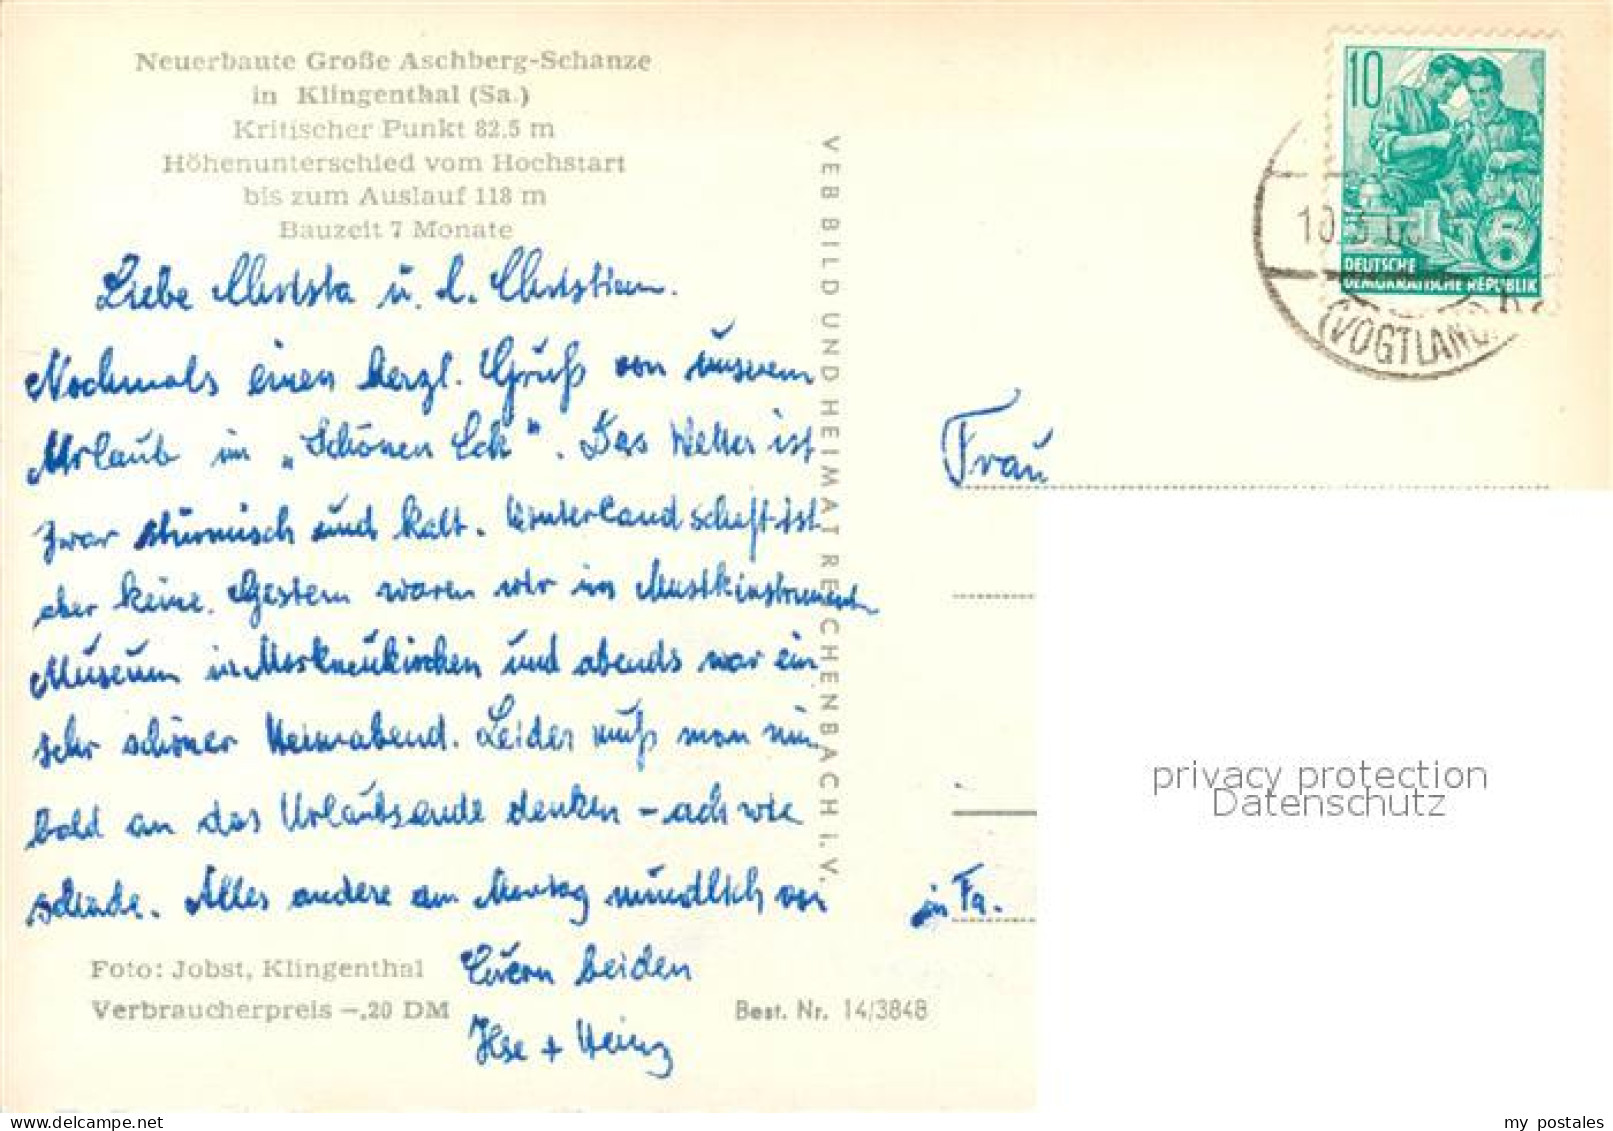 Neuerbaute Große Aschberg-Schanze
in Klingenthal (Sa.)
Kritischer Punkt 82,5 m
Höhenunterschied vom Hochstart
bis zum Auslauf 118 m
Bauzeit 7 Monate
Liebe Christa u. l. Christian.
Nochmals einen herzl. Gruß von unserem
Urlaub im „Schönen Eck“. Das Wetter ist
zwar stürmisch und kalt. Winterlandschaft ist
aber keine. Gestern waren wir im Musikinstrumenten
Museum in Markneukirchen und abends war ein
sehr schöner Heimabend. Leider muß man nun
bald an das Urlaubsende denken – ach wie
schade. Alles andere am Montag mündlich von
Euern beiden
Ilse + Heinz
Foto: Jobst, Klingenthal
Verbraucherpreis –,20 DM
Best. Nr. 14/3848
VEB BILD UND HEIMAT REICHENBACH i. V.
10
DEUTSCHE
DEMOKRATISCHE REPUBLIK
5
10.3.
(VOGTLAND)
Frau
in Fa.
privacy protection
Datenschutz
my postales